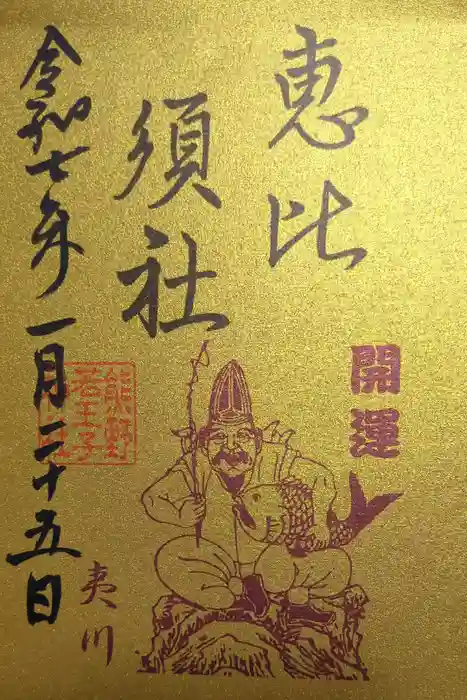 恵比
須社
開運
令和七年一月二十五日
熊野
若王子
社
夷川